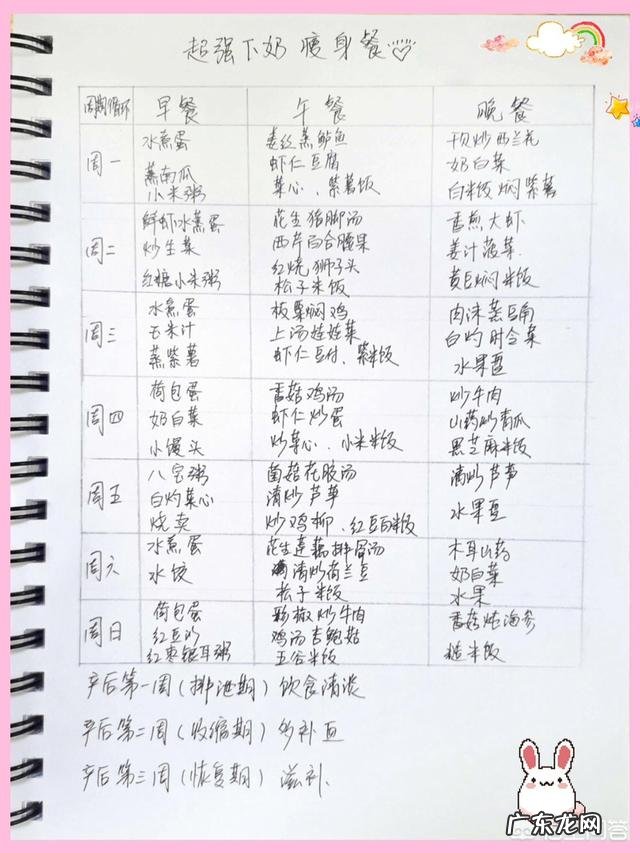 超强下奶瘦身餐
周期循环 早餐 午餐 晚餐
周一
水煮蛋
蒸南瓜
小米粥
姜丝蒸鲈鱼
虾仁豆腐
菜心、紫薯饭
干贝炒西兰花
奶白菜
白米饭 焖紫薯
周二
鲜虾水蒸蛋
炒生菜
红糖小米粥
花生猪脚汤
西芹百合腰果
红烧狮子头
松子米饭
香煎大虾
姜汁菠菜
黄豆焖米饭
周三
水煮蛋
玉米汁
蒸紫薯
板栗焖鸡
上汤娃娃菜
虾仁豆付、紫米饭
肉沫蒸豆角
白灼时令菜
水果
周四
荷包蛋
奶白菜
小馒头
香菇鸡汤
虾仁炒蛋
炒菜心、小米米饭
炒牛肉
山药炒青瓜
黑芝麻米饭
周五
八宝粥
白灼菜心
烧卖
菌菇花胶汤
清炒芦笋
炒鸡柳、红豆白米饭
清炒芦笋
水果
周六
水煮蛋
水饺
花生莲藕排骨汤
清炒荷兰豆
松子米饭
木耳山药
奶白菜
水果
周日
荷包蛋
红豆沙
红枣银耳粥
彩椒炒牛肉
鸡汤杏鲍菇
五谷米饭
香菇炖海参
糙米饭
产后第一周(排泄期)饮食清淡
产后第二周(收缩期)多补血
产后第三周(恢复期)滋补.
广东龙网